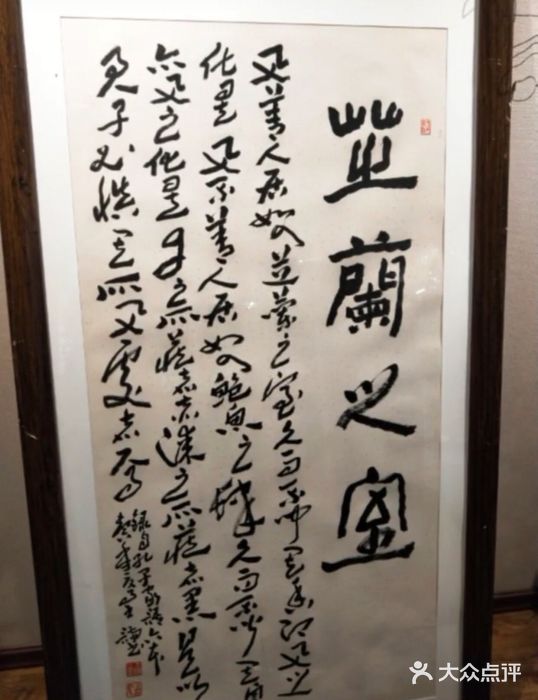 芷蘭之室
与善人居如芷蘭之室久而不聞其香即与之
化是与不善人居如鮑魚之肆久而不聞其臭
亦与之化是丹之所藏者赤漆之所藏者黑是以
君子必慎其所与處者焉
錄自孔子家語六本
大众点评